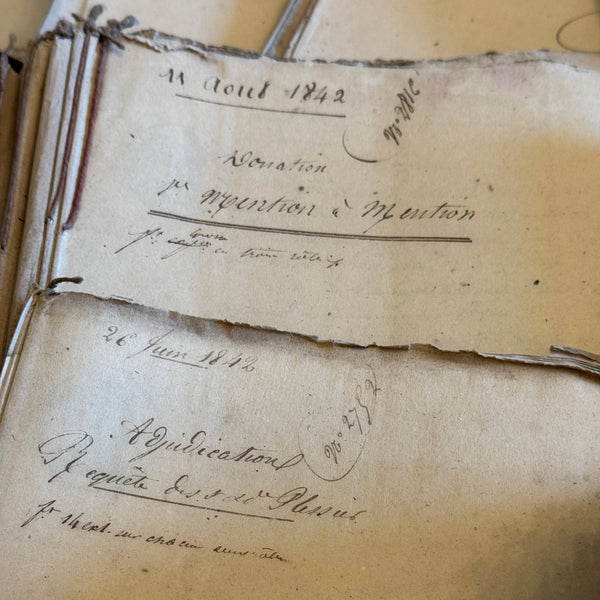 11 Août 1842
N° 2812
Donation
pr Mention à Mention
pr en trois rôles
26 Juin 1842
N° 2752
Adjudication
Requête des Sr et de Plessis
pr 14 ext. sur chacun